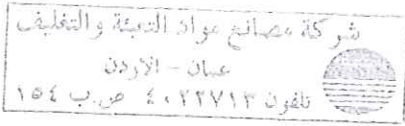 شركة مصانع مواد التعبئة والتغليف
عمان - الاردن
تلفون ٤٠٢٢٧١٣ ص.ب ١٥٤